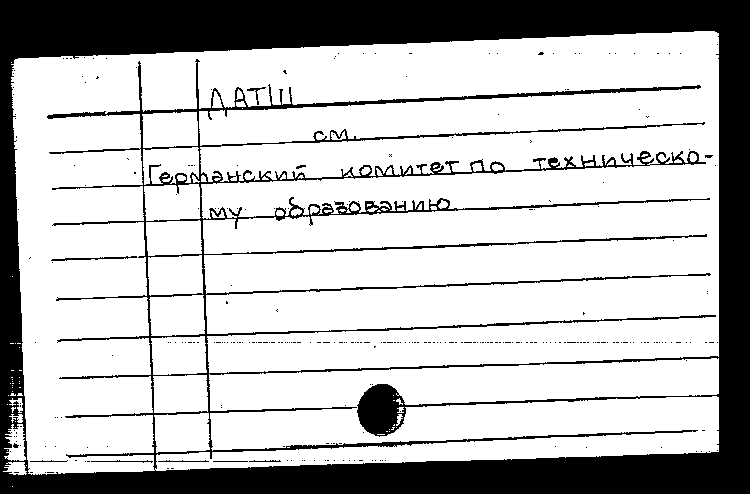 ДАТШ
см.
Германский комитет по техническо-
му образованию